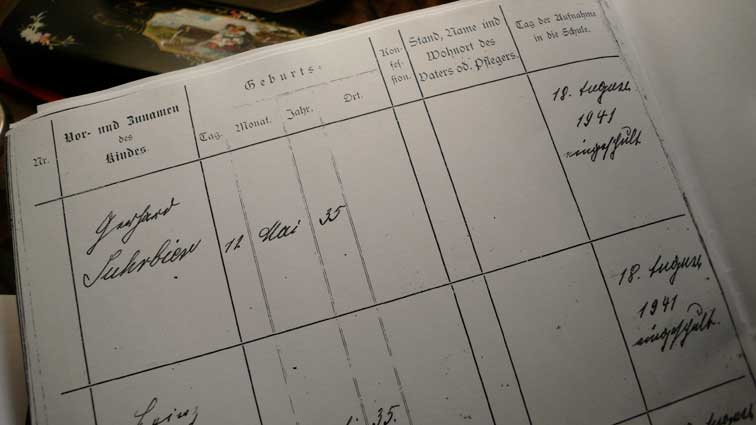 Nr.
Vor- und Zunamen
des
Kindes.
Geburts-
Tag.
Monat.
Jahr.
Ort.
Kon-
fes-
sion.
Stand, Name und
Wohnort des
Vaters od. Pflegers.
Tag der Aufnahme
in die Schule.
Gerhard
Suhrbier
12
Mai
35
18. August
1941
eingeschult
Heinz
35.
18. August
1941
eingeschult.